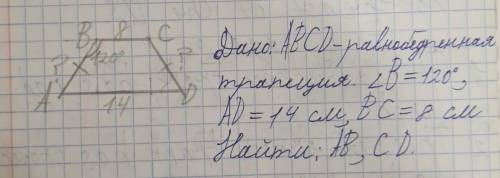 B 8 C
? 120° ?
A 14 D
Дано: ABCD-равнобедренная
трапеция. ∠B=120°,
AD=14 см, BC=8 см
Найти: AB, CD.